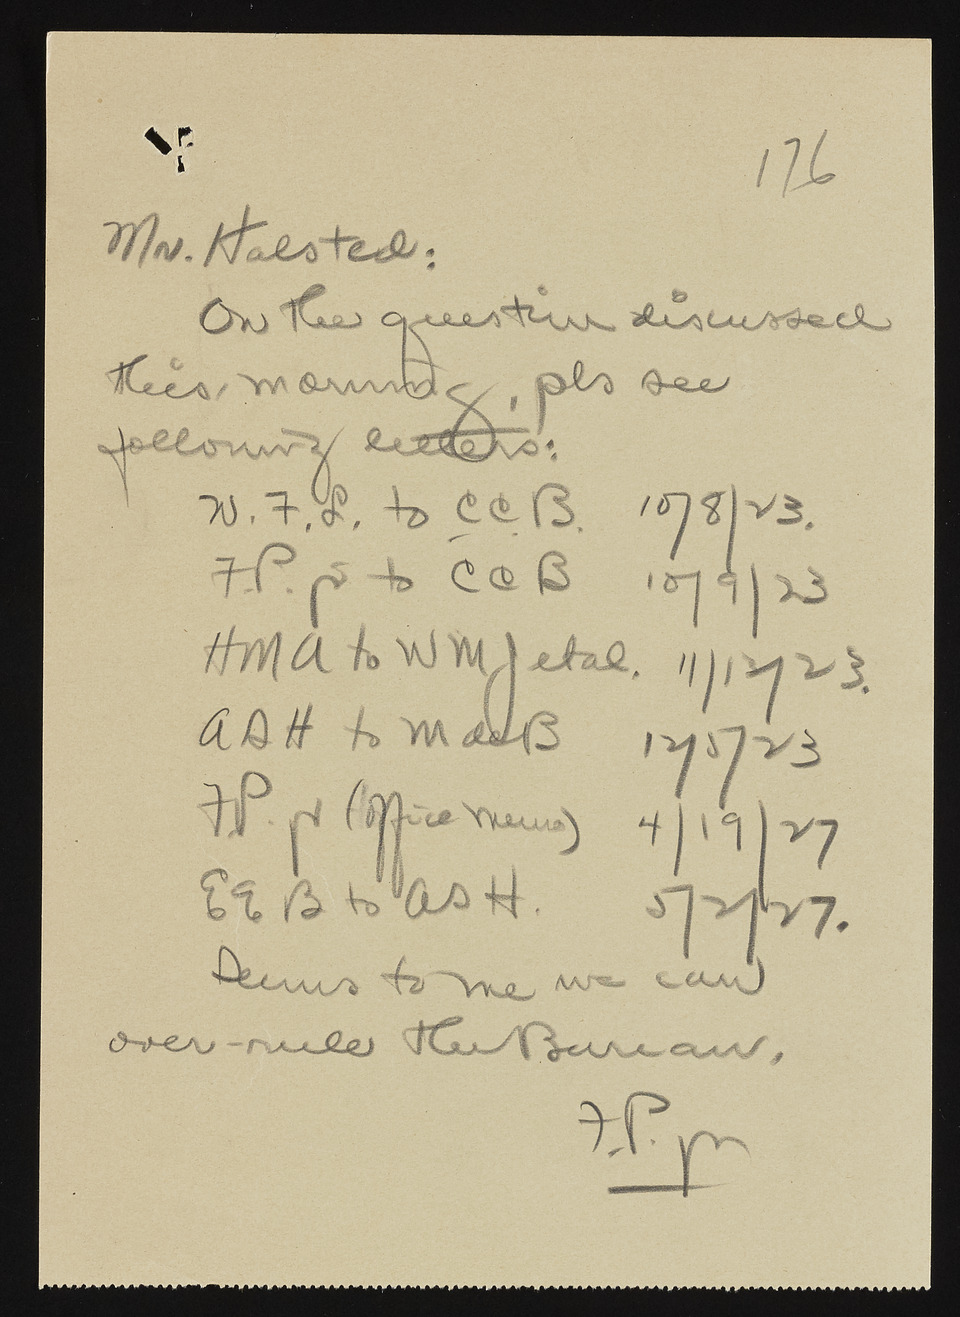 176
Mr. Halsted:
On the question discussed
this morning, pls see
following letters:
W. F. L. to C C B. 10/8/23.
F. P. jr to C C B 10/9/23
H M A to W M J et al. 11/12/23.
A S H to MacB 12/5/23
F. P. jr (office memo) 4/19/27
E E B to A S H. 5/2/27.
Seems to me we can
over-rule the Bureau.
F. P. jr